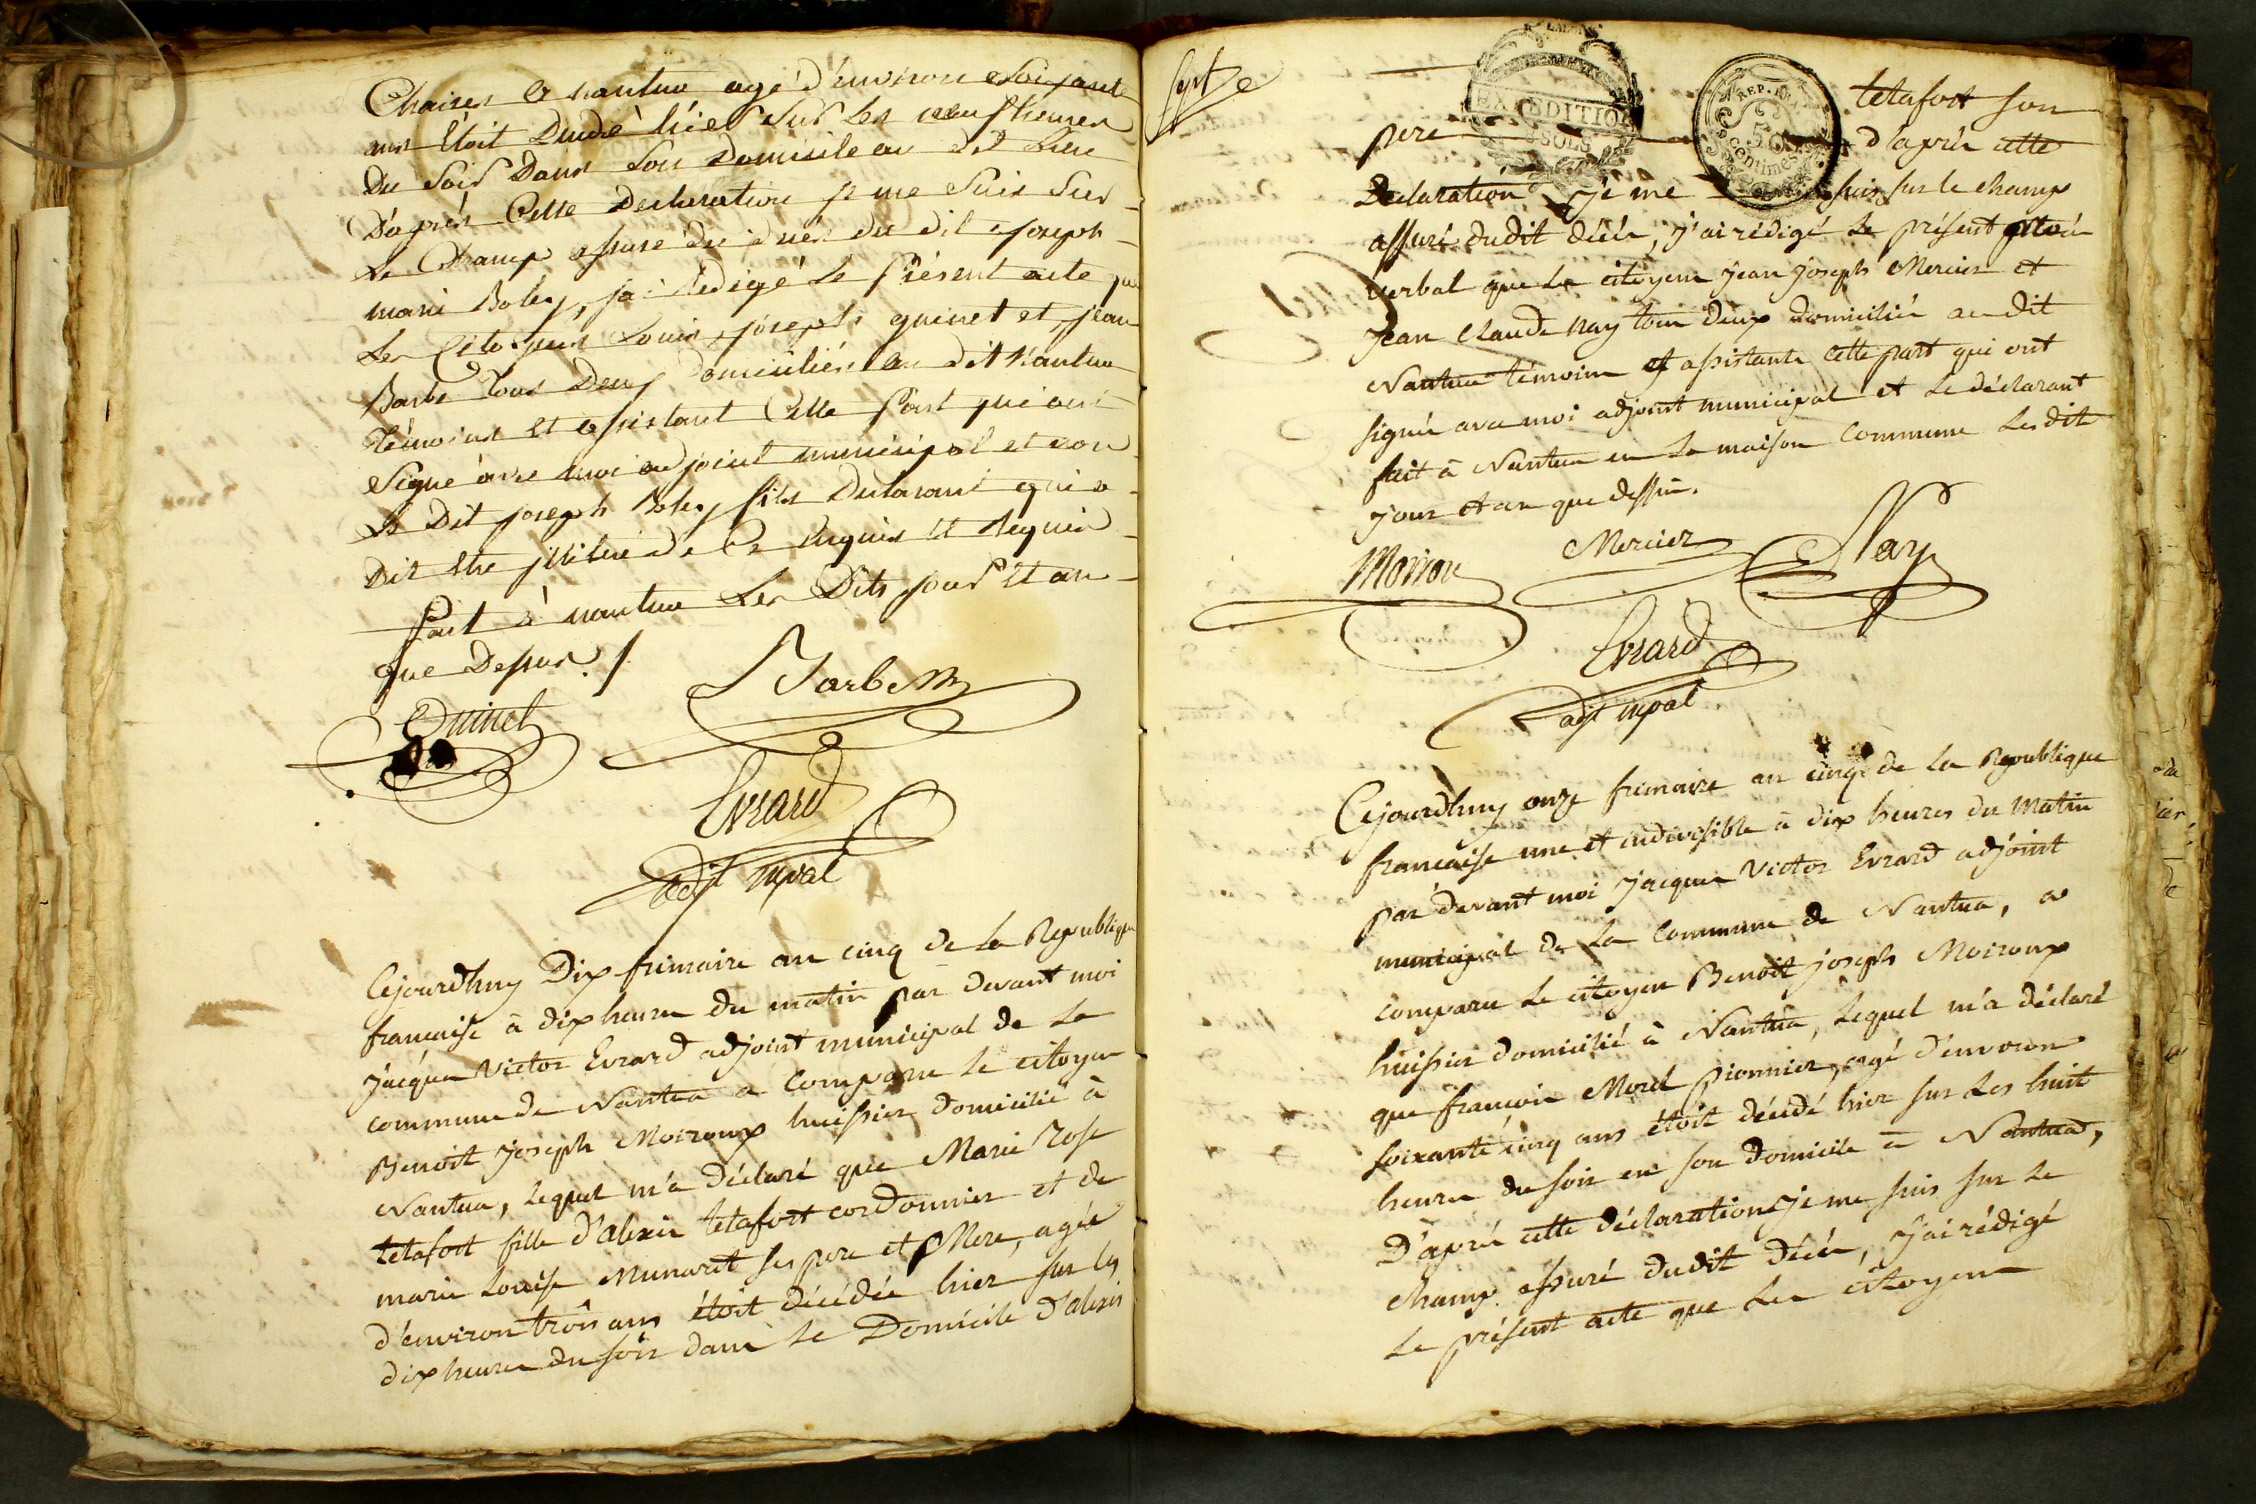 Chaises a nantua agé d'environ Soixante
ans Etoit Décédé hier Sur Les neuf heures
Du Soir Dans Son Domicile au dit Lieu
D'après Cette Declaration je me Suis Sur
Le Champ assuré du décés du dit joseph
marie Boley, jai Rédigé Le Présent acte que
Les Citoyens Louis joseph guinet et jean
Barbe tous Deux Domiciliés au dit Nantua
témoins et assistant Cette Part qui ont
Signé avec moi adjoint municipal et non
Le Dit joseph Boley fils Declarant qui a
Dit Etre illitéré de Ce Enquis Et Requis
Fait à nantua Les Dits jour Et an
que Dessus ./
Guinet
Barbe
Evrard
adjt mpal
Cejourdhuy Dix frimaire an cinq de la Republique
francaise à dix heures du matin par devant moi
jacques Victor Evrard adjoint municipal de la
commune de Nantua a comparu le citoyen
Benoit joseph Moiroux huissier domicilié à
Nantua, lequel m'a déclaré que Marie Rose
tetafort fille d'alexis tetafort cordonnier et de
marie Louise Munaret ses pere et Mere, agée
d'environ trois ans étoit décédée hier sur les
dix heures du soir dans le Domicile d'alexis
sept
EXPEDITION
SOLS
REP. FRA.
50
centimes
tetafort son
pere d'après cette
Declaration je me suis sur le champ
assuré dudit décés, j'ai rédigé le présent procés
verbal que les citoyens jean joseph Mercier et
jean claude Nay tous deux domiciliés au dit
Nantua témoins et assistants cette part qui ont
signés avec moi adjoint municipal et le déclarant
fait à Nantua en la maison commune lesdit
jour et an que dessus.
Mercier
Nay
Evrard
adjt mpal
Cejourdhuy onze frimaire an cinq de la Republique
francaise une et indivisible à dix heures du Matin
par devant moi jacques Victor Evrard adjoint
municipal de la commune de Nantua, a
comparu le citoyen Benoit joseph Moiroux
huissier domicilié à Nantua, lequel m'a déclaré
que francois Morel pionnier, agé d'environ
soixante cinq ans étoit décédé hier sur les huit
heures du soir en son domicile à Nantua,
D'après cette déclaration je me suis sur le
champ assuré dudit décés, j'ai rédigé
le présent acte que les citoyens